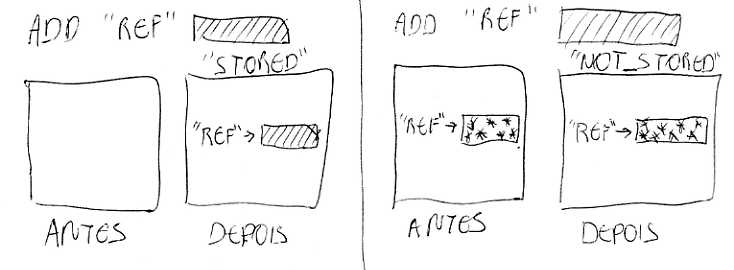 ADD "REF"
"STORED"
"REF"→
ANTES
DEPOIS
ADD "REF"
"NOT_STORED"
"REF"→
"REF"→
ANTES
DEPOIS